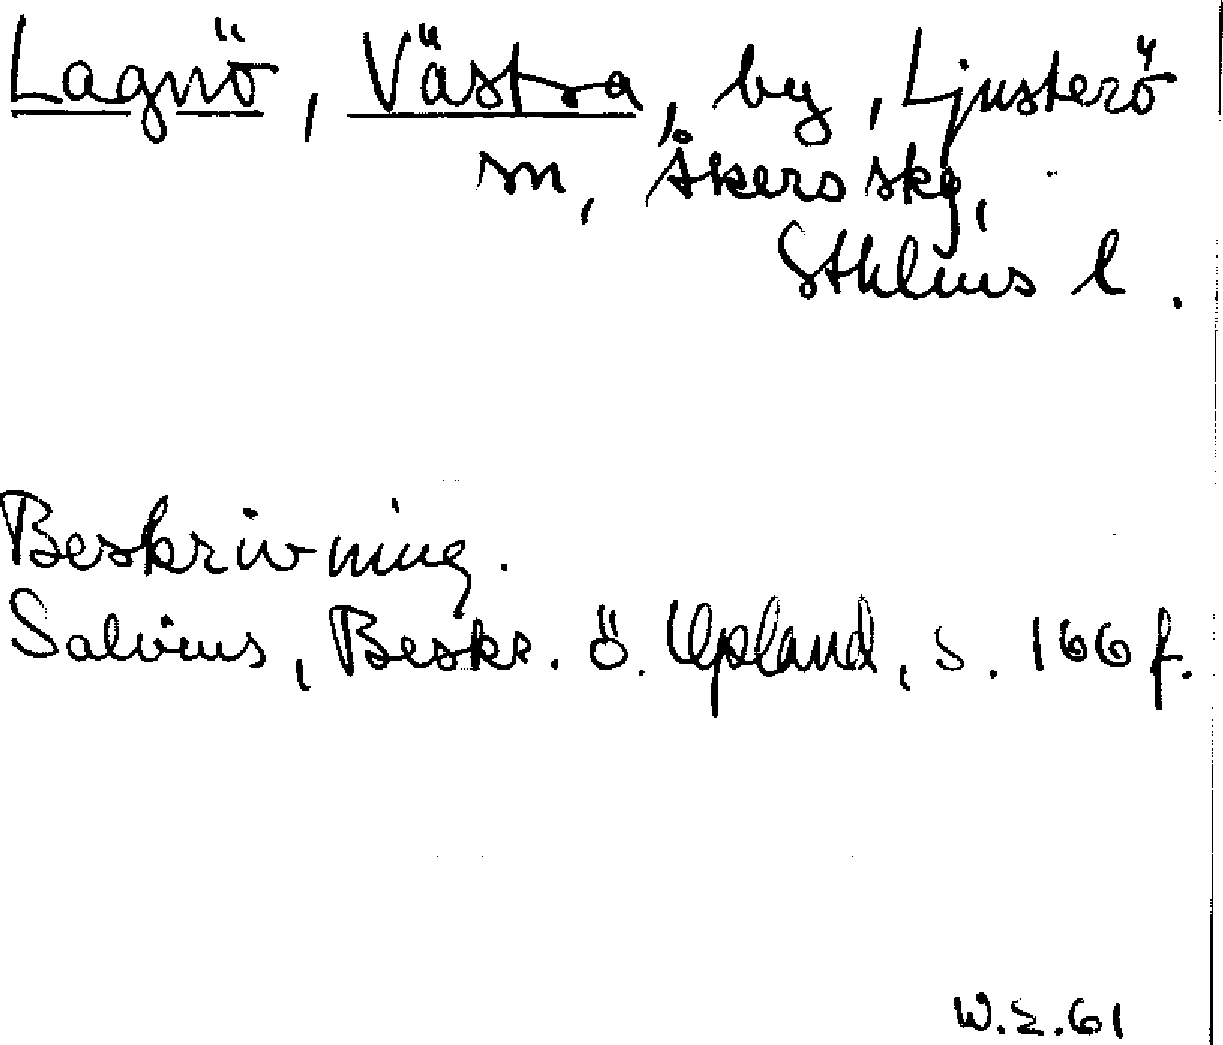 Lagnö, Västra, by, Ljusterö
sn, Åkers skg,
Sthlms l.
Beskrivning.
Salvius, Beskr. ö. Upland, s. 166 f.
W.2.61